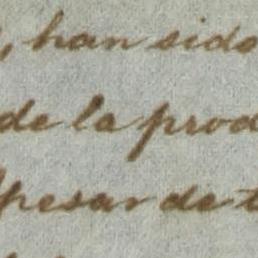 , han sido
de la prod
Apesar de t